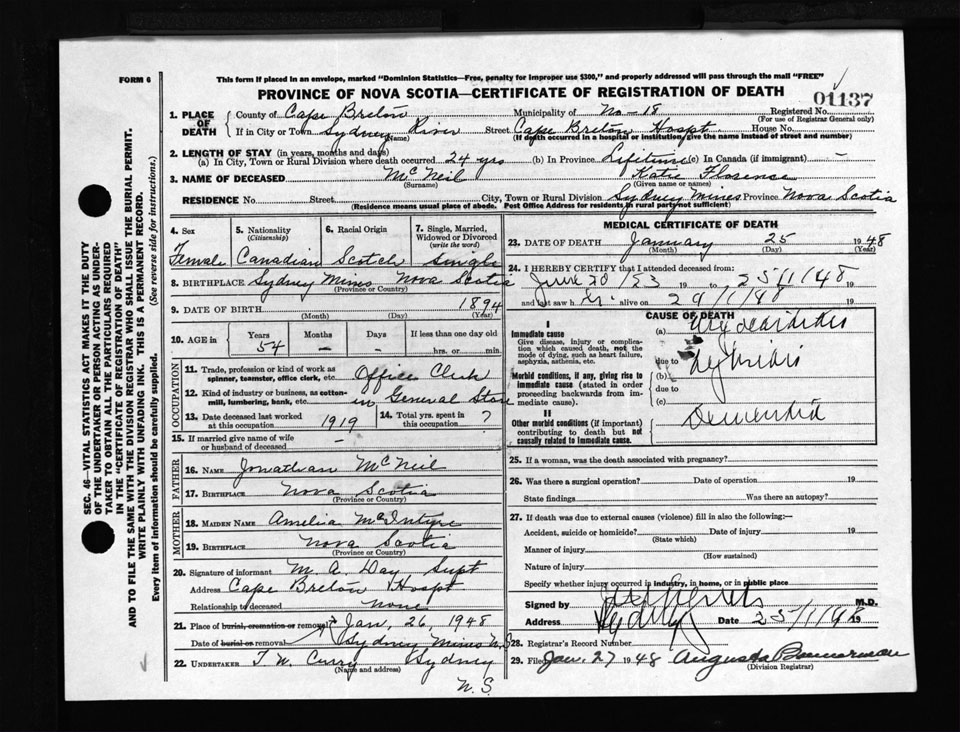 FORM 6
This form if placed in an envelope, marked "Dominion Statistics—Free, penalty for improper use $300," and properly addressed will pass through the mail "FREE"
PROVINCE OF NOVA SCOTIA—CERTIFICATE OF REGISTRATION OF DEATH
01137
1. PLACE OF DEATH County of Cape Breton Municipality of No-18 Registered No.
(For use of Registrar General only)
If in City or Town Sydney River Street Cape Breton Hospt. House No.
(Name) (If death occurred in a hospital or institution, give the name instead of street and number)
2. LENGTH OF STAY (in years, months and days)
(a) In City, Town or Rural Division where death occurred 24 yrs (b) In Province Lifetime (c) In Canada (if immigrant) –
3. NAME OF DECEASED McNeil Katie Florence
(Surname) (Given name or names)
RESIDENCE No. Street City, Town or Rural Division Sydney Mines Province Nova Scotia
(Residence means usual place of abode. Post Office Address for residents in rural parts not sufficient)
4. Sex 5. Nationality (Citizenship) 6. Racial Origin 7. Single, Married, Widowed or Divorced (write the word)
Female Canadian Scotch Single
8. BIRTHPLACE Sydney Mines Nova Scotia
(Province or Country)
9. DATE OF BIRTH 1894
(Month) (Day) (Year)
10. AGE in Years Months Days If less than one day old
54 – – hrs. or min.
OCCUPATION
11. Trade, profession or kind of work as spinner, teamster, office clerk, etc. Office Clerk
12. Kind of industry or business, as cotton-mill, lumbering, bank, etc. in General Store
13. Date deceased last worked at this occupation 1919 14. Total yrs. spent in this occupation ?
15. If married give name of wife or husband of deceased –
FATHER
16. NAME Jonathan McNeil
17. BIRTHPLACE Nova Scotia
(Province or Country)
MOTHER
18. MAIDEN NAME Amelia McIntyre
19. BIRTHPLACE Nova Scotia
(Province or Country)
20. Signature of informant M. A. Day Supt
Address Cape Breton Hospt
Relationship to deceased none
21. Place of burial, cremation or removal Jan, 26, 1948
Date of burial or removal Sydney Mines N.S
22. UNDERTAKER T. W. Curry Sydney
(Name and address)
N. S.
MEDICAL CERTIFICATE OF DEATH
23. DATE OF DEATH January 25 1948
(Month) (Day) (Year)
24. I HEREBY CERTIFY that I attended deceased from:
June 20/23 19 to 25/1/48 19
and last saw h er alive on 19
CAUSE OF DEATH
I
Immediate cause (a)
Give disease, injury or complication which caused death, not the mode of dying, such as heart failure, asphyxia, asthenia, etc.
due to
Morbid conditions, if any, giving rise to immediate cause (stated in order proceeding backwards from immediate cause). (b)
due to
(c)
II
Other morbid conditions (if important) contributing to death but not causally related to immediate cause. Dementia
25. If a woman, was the death associated with pregnancy?
26. Was there a surgical operation? Date of operation 19
State findings Was there an autopsy?
27. If death was due to external causes (violence) fill in also the following:—
Accident, suicide or homicide? Date of injury 19
(State which)
Manner of injury
(How sustained)
Nature of injury
Specify whether injury occurred in industry, in home, or in public place
Signed by M.D.
Address Sydney Date 25/1/48 19
28. Registrar's Record Number
29. Filed Jan. 27 1948 Augusta
(Division Registrar)
SEC. 46—VITAL STATISTICS ACT MAKES IT THE DUTY
OF THE UNDERTAKER OR PERSON ACTING AS UNDER-
TAKER TO OBTAIN ALL THE PARTICULARS REQUIRED
IN THE "CERTIFICATE OF REGISTRATION OF DEATH"
AND TO FILE THE SAME WITH THE DIVISION REGISTRAR WHO SHALL ISSUE THE BURIAL PERMIT.
WRITE PLAINLY WITH UNFADING INK. THIS IS A PERMANENT RECORD.
Every item of information should be carefully supplied. (See reverse side for instructions.)